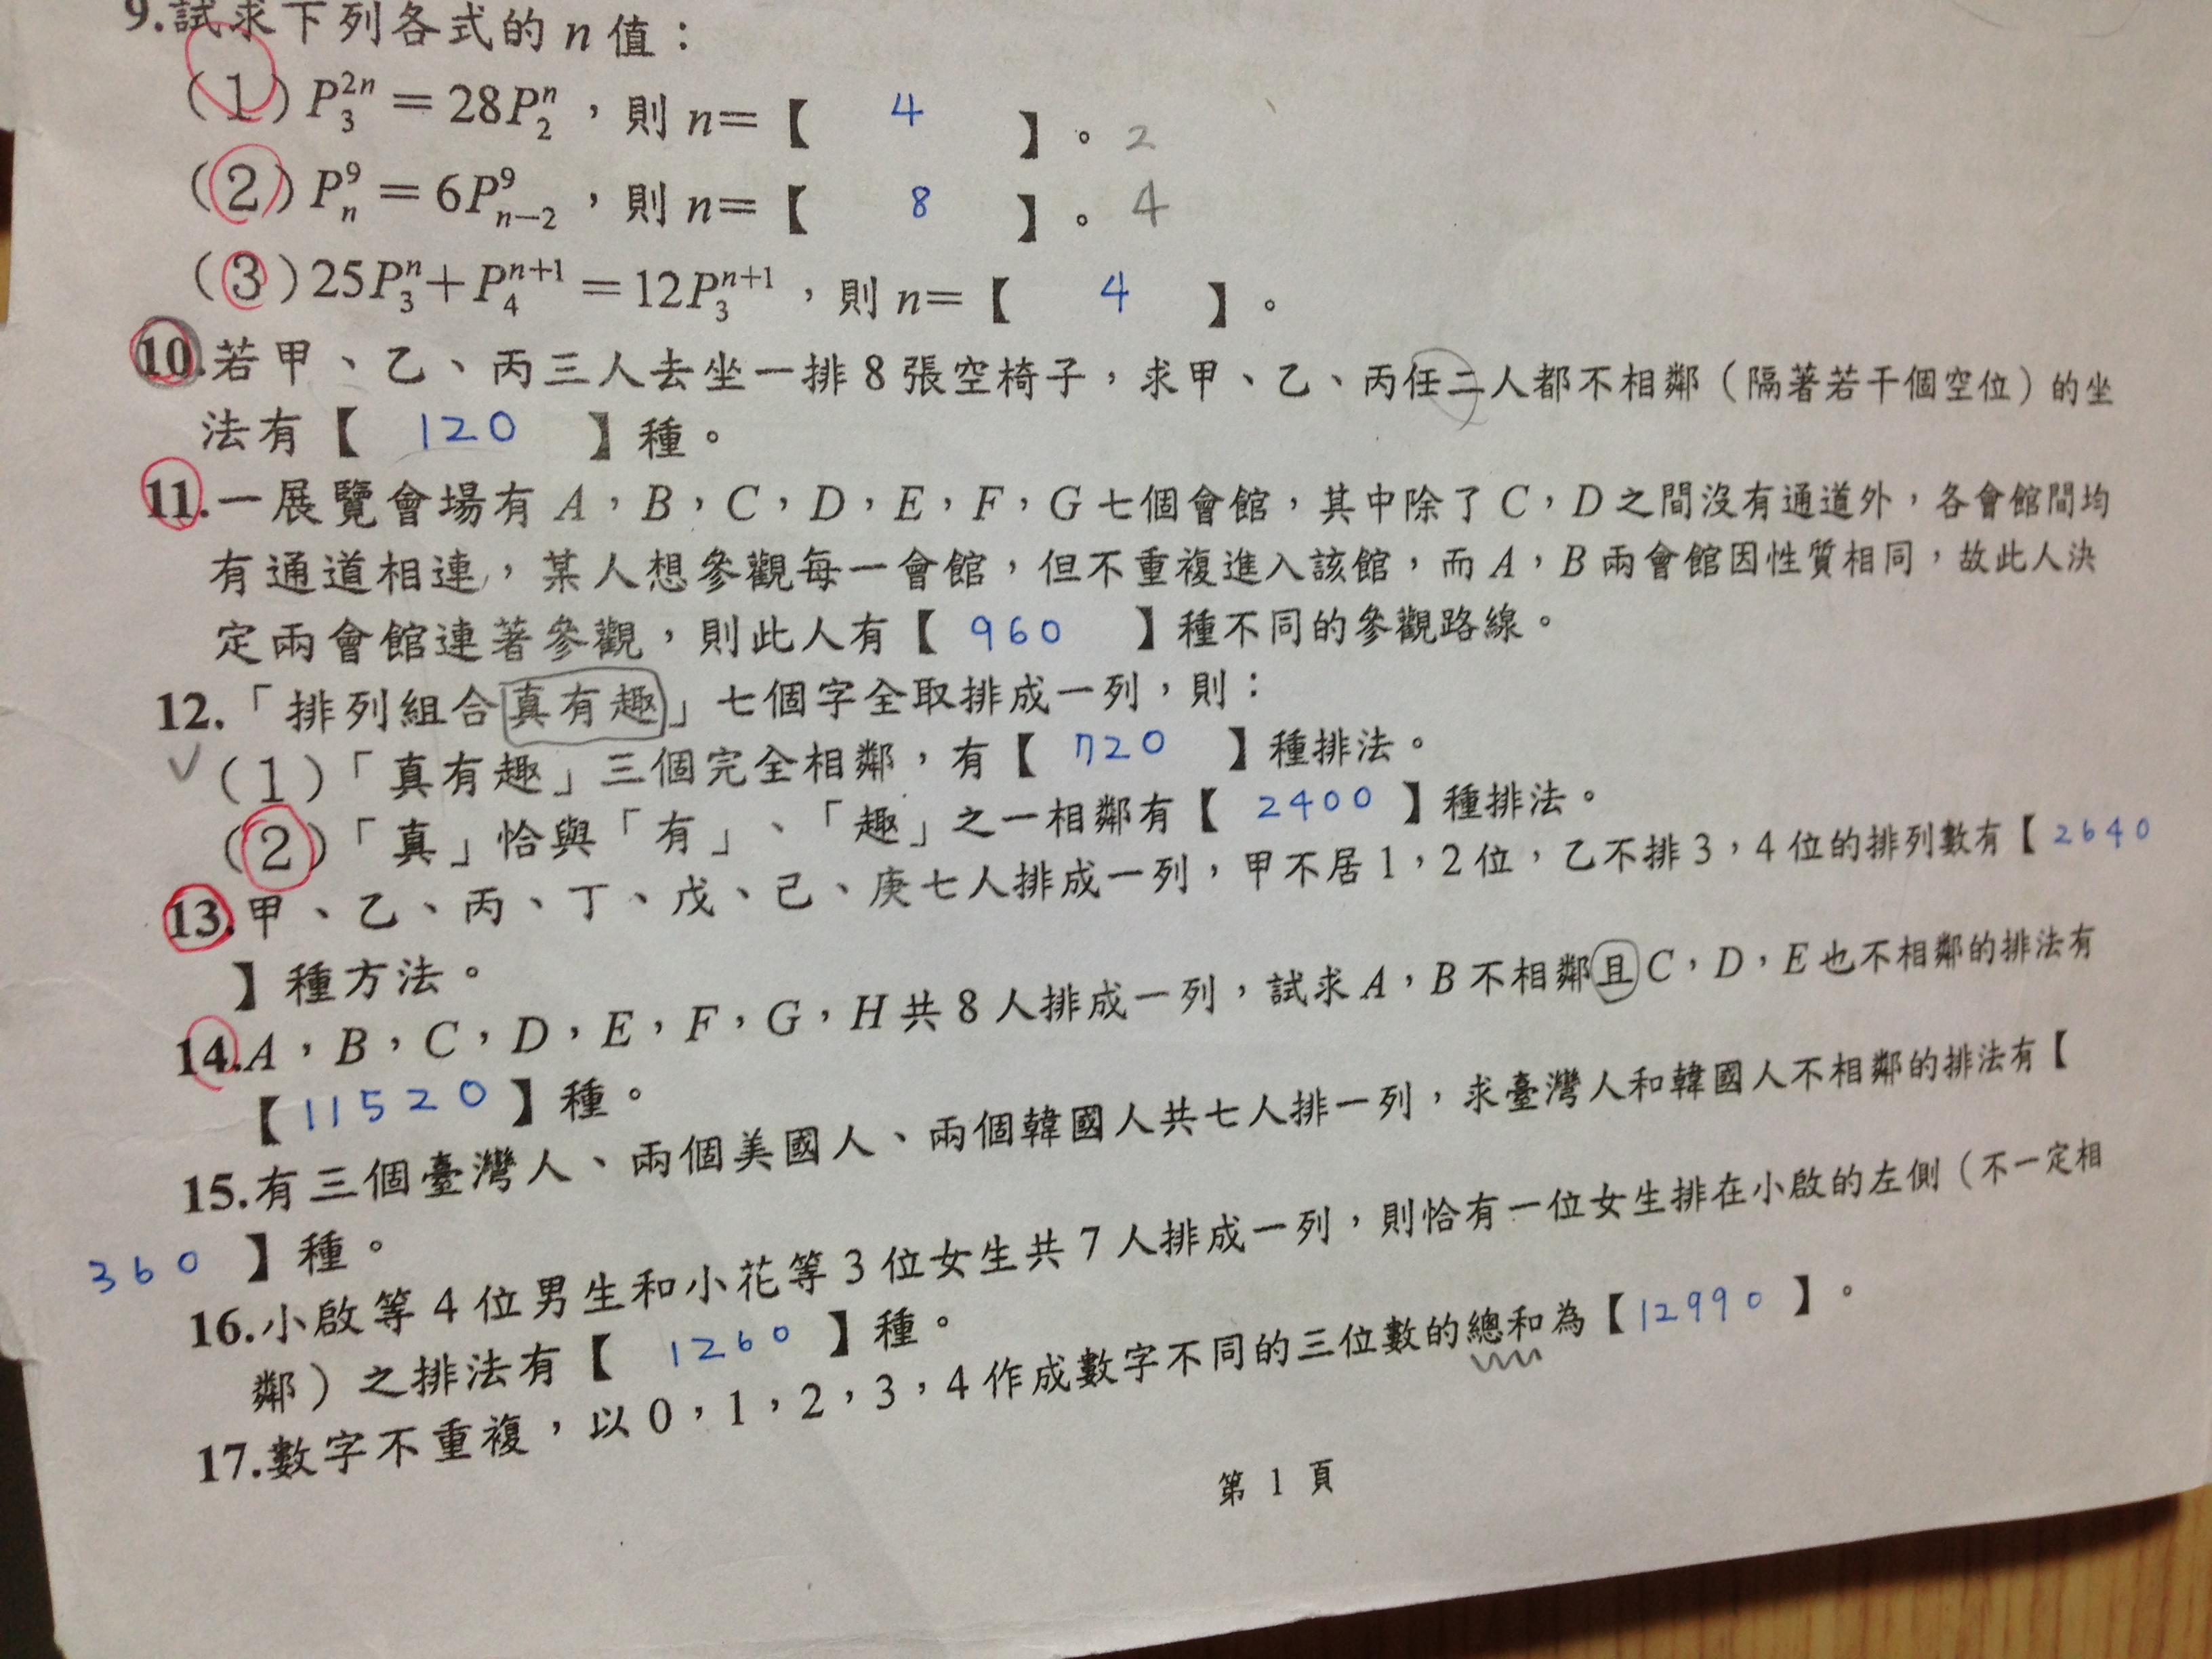 9.試求下列各式的 n 值：
(1) P₃²ⁿ＝28P₂ⁿ，則 n＝【 4 】。2
(2) Pₙ⁹＝6Pₙ₋₂⁹，則 n＝【 8 】。4
(3) 25P₃ⁿ＋P₄ⁿ⁺¹＝12P₃ⁿ⁺¹，則 n＝【 4 】。
10.若甲、乙、丙三人去坐一排 8 張空椅子，求甲、乙、丙任二人都不相鄰（隔著若干個空位）的坐
法有【 120 】種。
11.一展覽會場有 A，B，C，D，E，F，G 七個會館，其中除了 C，D 之間沒有通道外，各會館間均
有通道相連，某人想參觀每一會館，但不重複進入該館，而 A，B 兩會館因性質相同，故此人決
定兩會館連著參觀，則此人有【 960 】種不同的參觀路線。
12.「排列組合真有趣」七個字全取排成一列，則：
(1)「真有趣」三個完全相鄰，有【 720 】種排法。
(2)「真」恰與「有」、「趣」之一相鄰有【 2400 】種排法。
13.甲、乙、丙、丁、戊、己、庚七人排成一列，甲不居 1，2 位，乙不排 3，4 位的排列數有【 2640
】種方法。
14.A，B，C，D，E，F，G，H 共 8 人排成一列，試求 A，B 不相鄰且 C，D，E 也不相鄰的排法有
【 11520 】種。
15.有三個臺灣人、兩個美國人、兩個韓國人共七人排一列，求臺灣人和韓國人不相鄰的排法有【
360 】種。
16.小啟等 4 位男生和小花等 3 位女生共 7 人排成一列，則恰有一位女生排在小啟的左側（不一定相
鄰）之排法有【 1260 】種。
17.數字不重複，以 0，1，2，3，4 作成數字不同的三位數的總和為【 12990 】。
第 1 頁